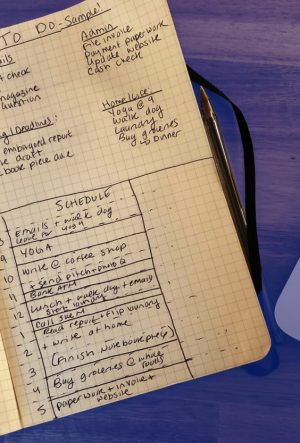 TO DO - Sample
Admin
File invoice
Payment paperwork
Update website
Cash check
check
magazine
question
Home/Life:
Yoga @ 9
walk dog
Laundry
Buy groceries
↳ Dinner
Deadlines:
embargoed report
draft
book piece due
SCHEDULE
8 Emails + walk dog
leave for yoga
9 YOGA
10 write @ coffee shop
+ send pitch
11 Bank ATM
12 Lunch + walk dog + email
start laundry
Call
1 Read report + flip laundry
2 + write at home
3 (Finish notebook piece)
4 Buy groceries @ whole
foods
5 paperwork + invoice +
website